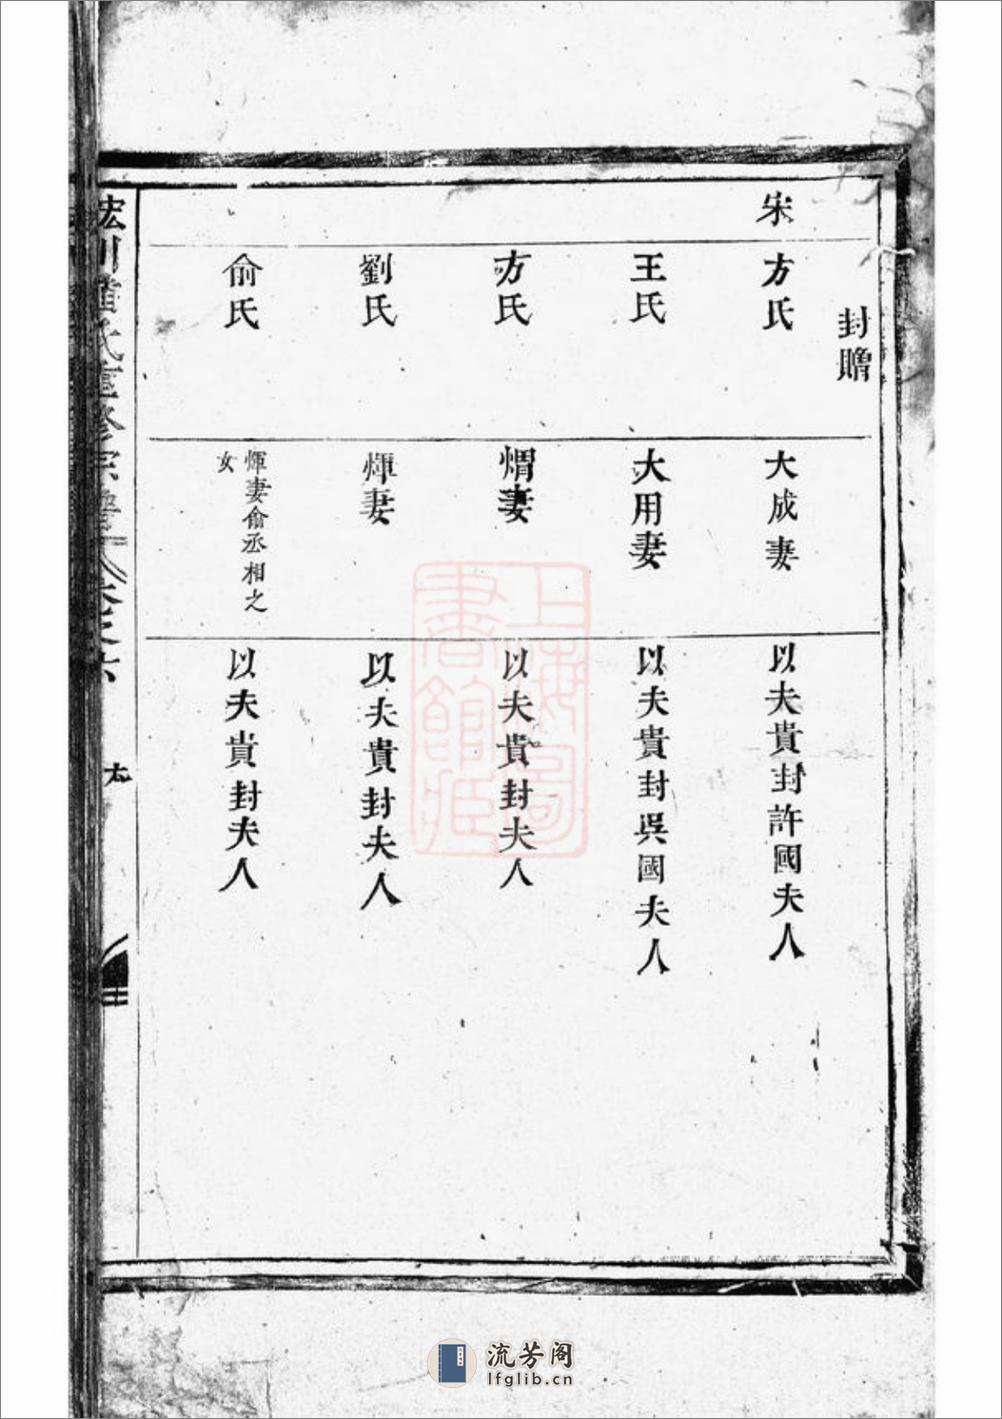 封贈
宋
方氏
大成妻
以夫貴封許國夫人
王氏
大用妻
以夫貴封吳國夫人
方氏
熠妻
以夫貴封夫人
劉氏
煇妻
以夫貴封夫人
俞氏
煇妻俞丞相之
女
以夫貴封夫人
氏重修宗譜
卷之六
上海圖
書館藏
流芳阁
lfglib.cn